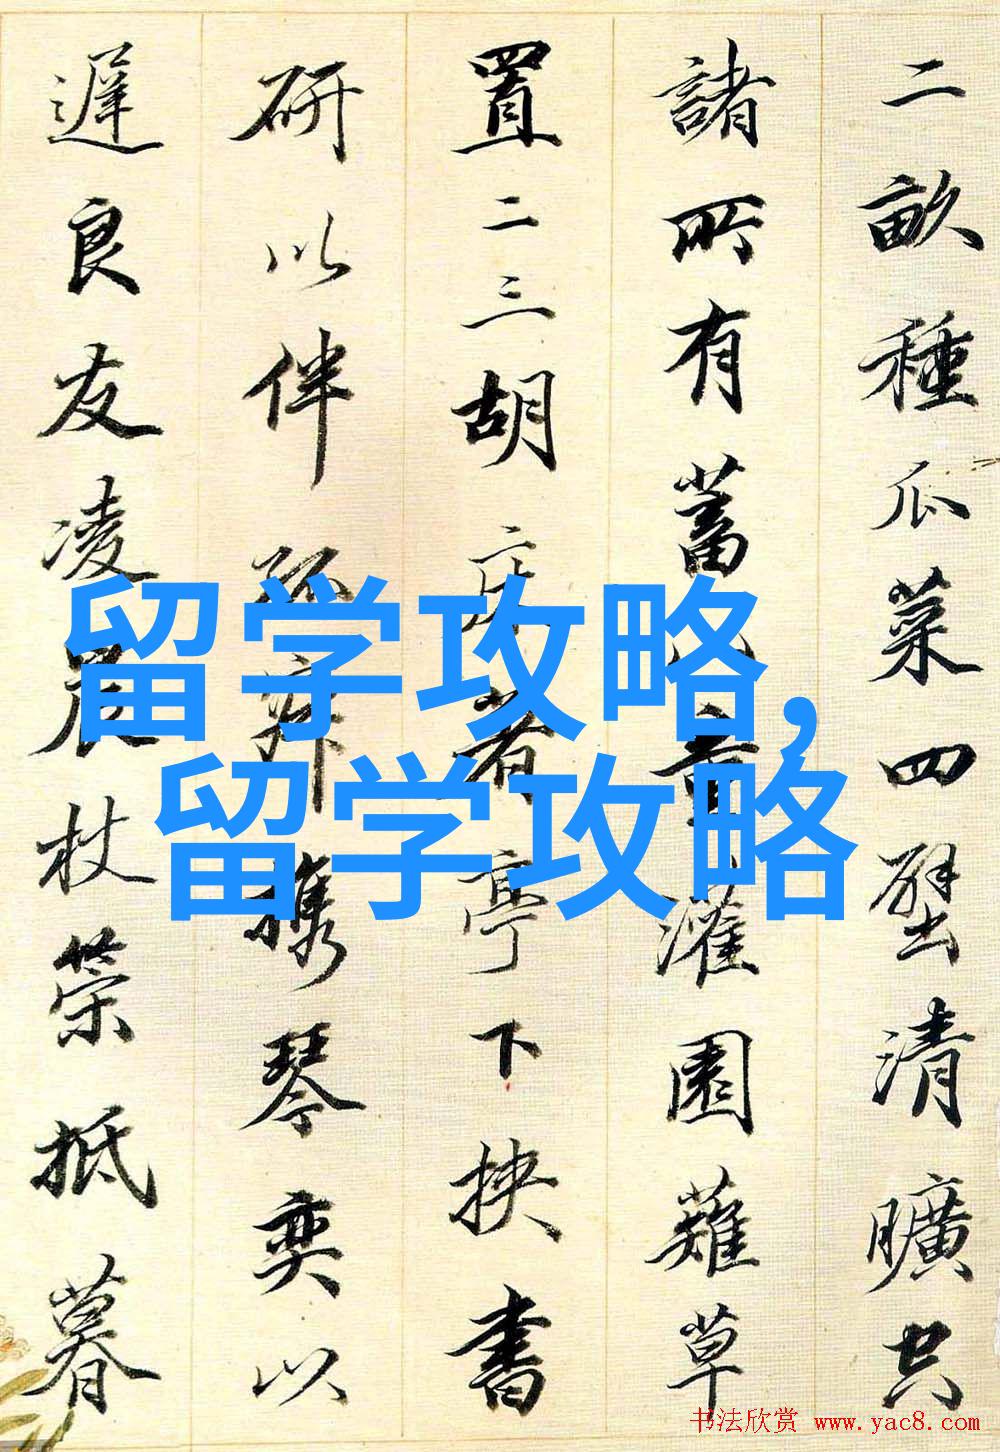 二畝種瓜菜四壁清曠空
諸所有蓄山童灌園薙草
置二三胡床着亭下挾書
研以伴孤寂携琴奕以
遲良友凌晨杖策抵暮
留学攻略,
留学攻略
书法欣赏 www.yac8.com